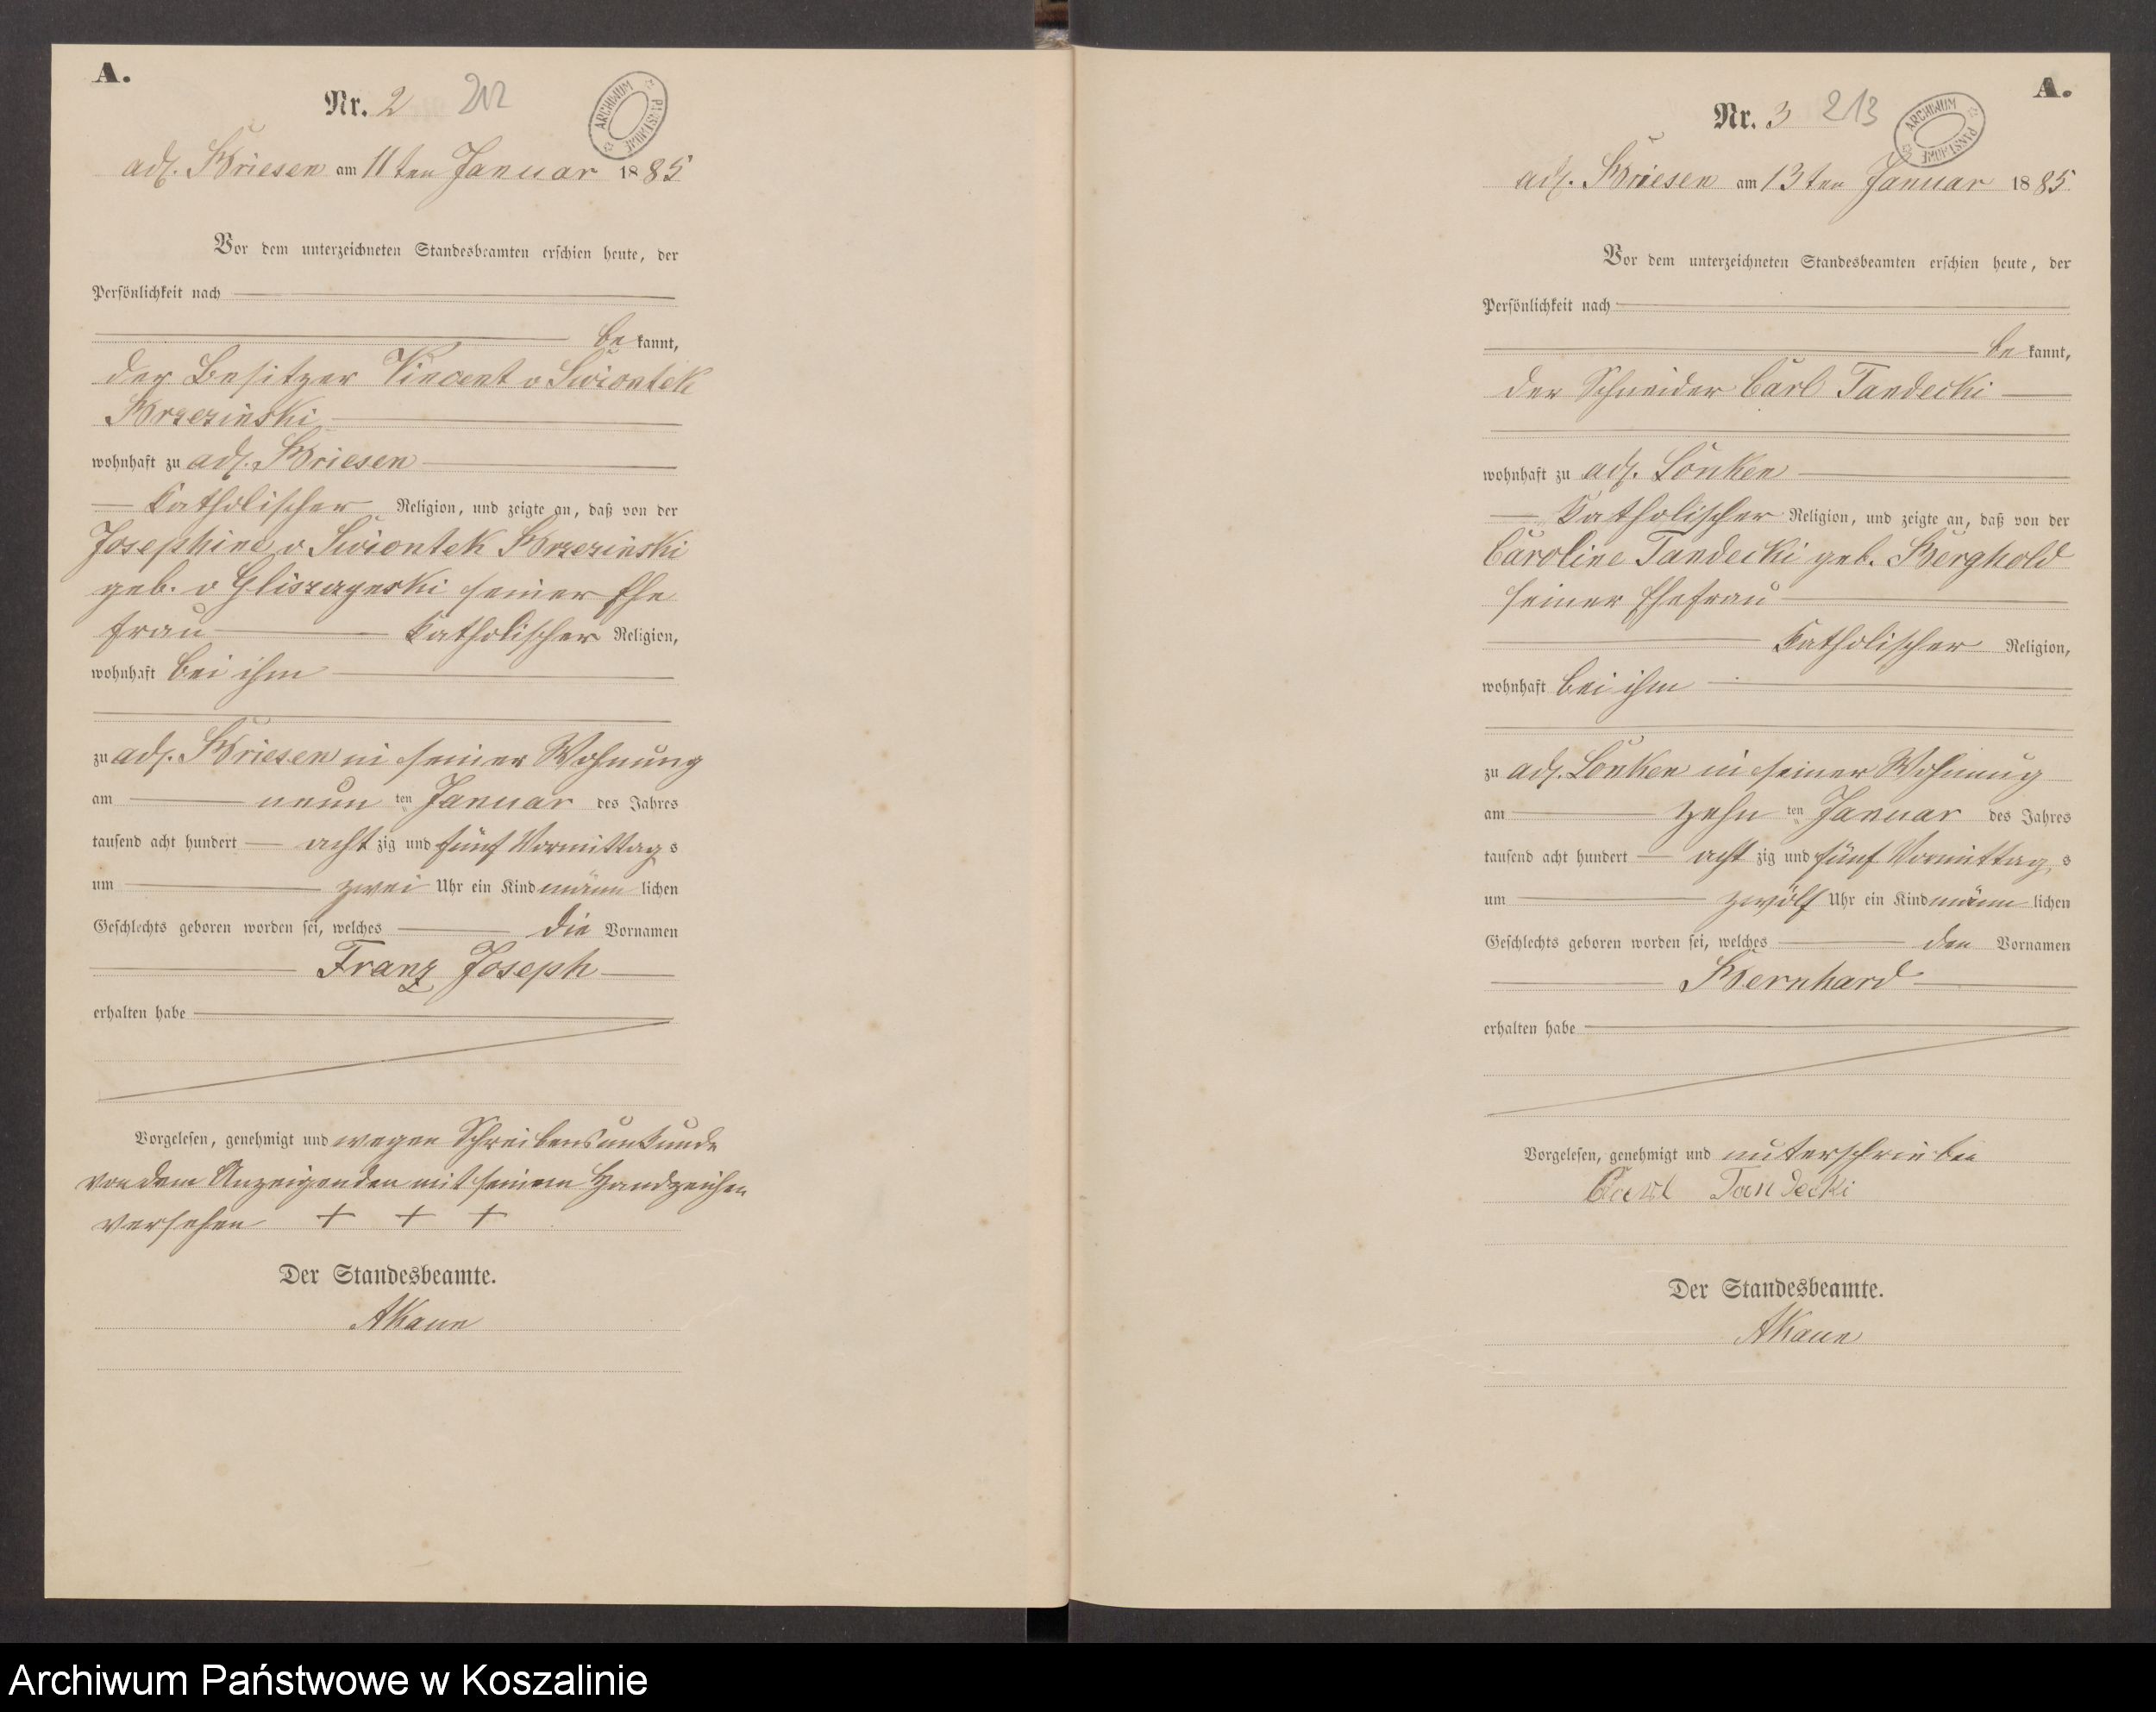 A.
Nr. 2 212
ARCHIWUM PAŃSTWOWE
adl. Briesen am 11ten Januar 1885
Vor dem unterzeichneten Standesbeamten erschien heute, der
Persönlichkeit nach
bekannt,
der Besitzer Vincent v Swiontek
Brzezinski
wohnhaft zu adl. Briesen
Katholischer Religion, und zeigte an, daß von der
Josephine v Swiontek Brzezinski
geb. v seiner Ehe
frau Katholischer Religion,
wohnhaft bei ihm
zu adl. Briesen in seiner Wohnung
am neun ten Januar des Jahres
tausend acht hundert acht zig und fünf Vormittags
um zwei Uhr ein Kind männlichen
Geschlechts geboren worden sei, welches die Vornamen
Franz Joseph
erhalten habe
Vorgelesen, genehmigt und wegen Schreibensunkunde
von dem Anzeigenden mit seinem Handzeichen
versehen + + +
Der Standesbeamte.
AKaun
A.
Nr. 3 213
ARCHIWUM PAŃSTWOWE
adl. Briesen am 13ten Januar 1885
Vor dem unterzeichneten Standesbeamten erschien heute, der
Persönlichkeit nach
bekannt,
der Schneider Carl Tandecki
wohnhaft zu adl. Lonken
Katholischer Religion, und zeigte an, daß von der
Caroline Tandecki geb. Berghold
seiner Ehefrau
Katholischer Religion,
wohnhaft bei ihm
zu adl. Lonken in seiner Wohnung
am zehn ten Januar des Jahres
tausend acht hundert acht zig und fünf Vormittags
um zwölf Uhr ein Kind männlichen
Geschlechts geboren worden sei, welches den Vornamen
Bernhard
erhalten habe
Vorgelesen, genehmigt und unterschrieben
Carl Tandecki
Der Standesbeamte.
AKaun
Archiwum Państwowe w Koszalinie